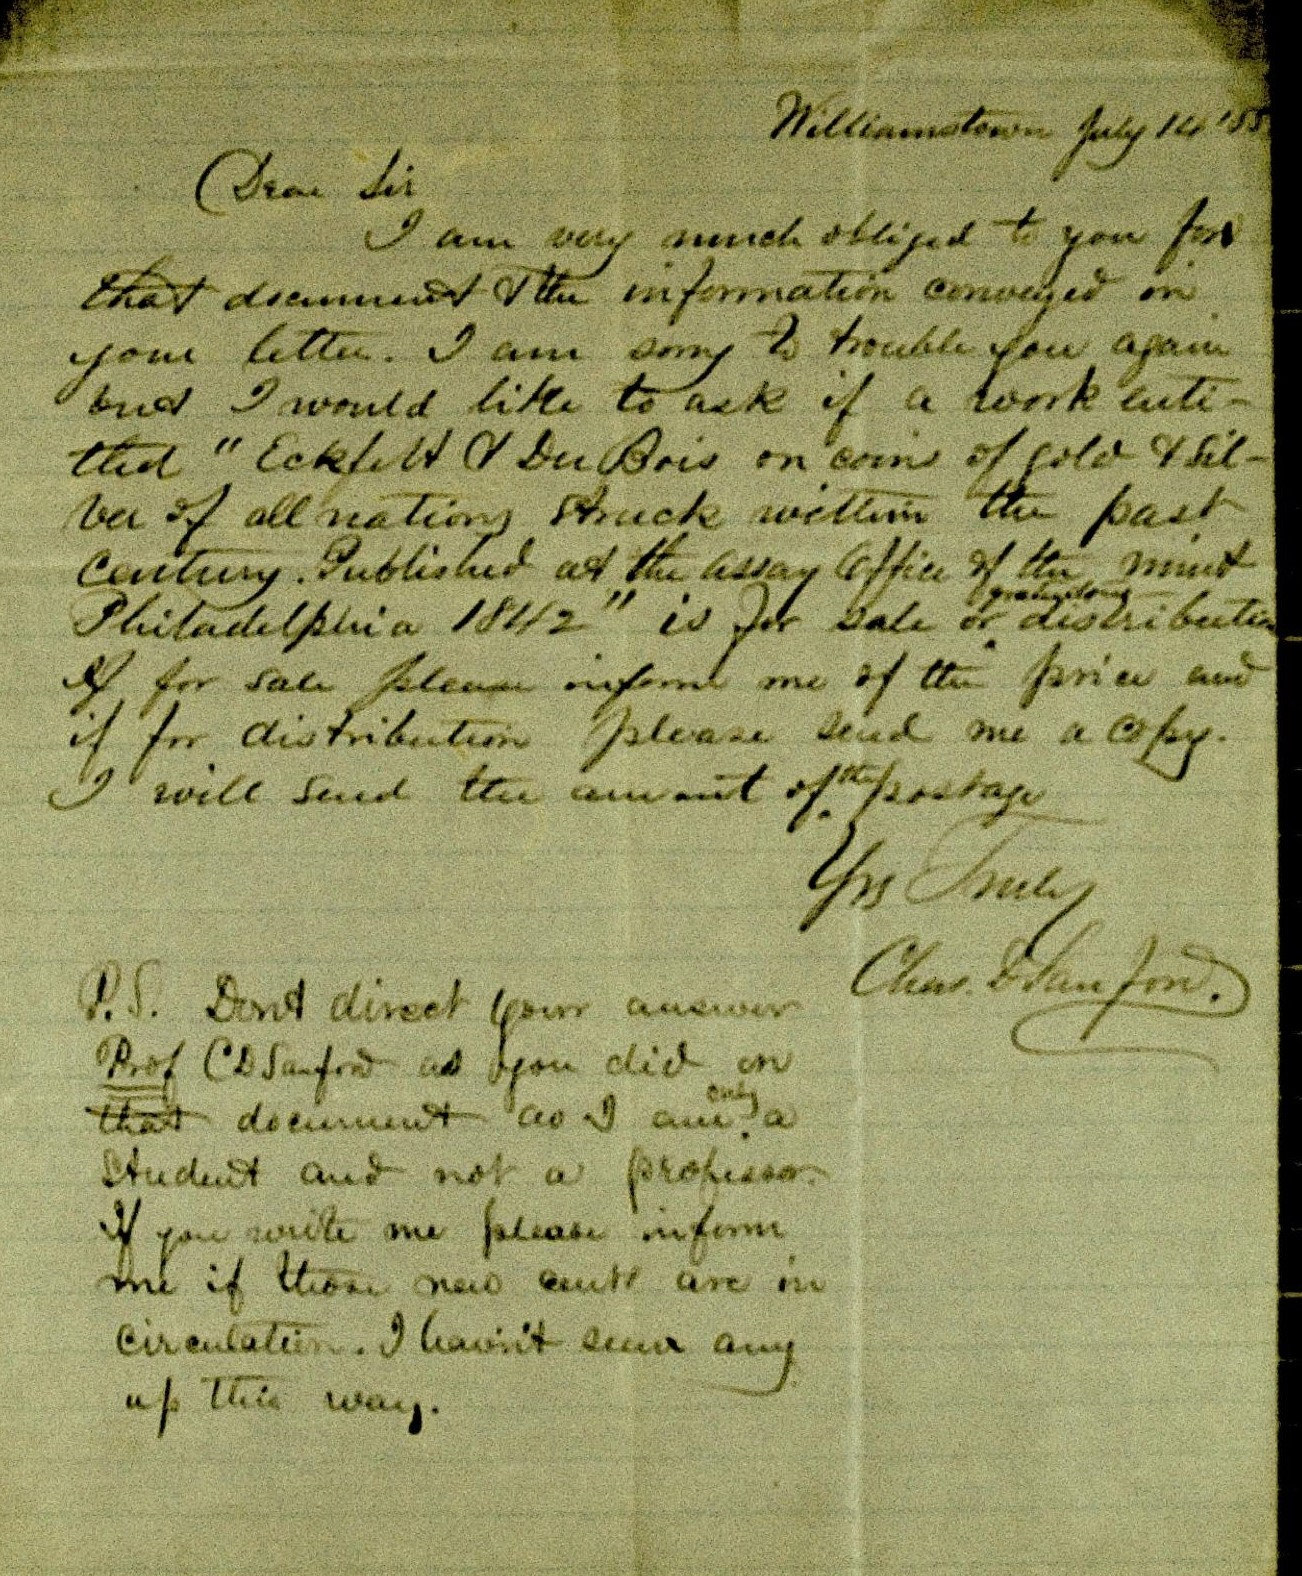 Williamstown July 14 '58
Dear Sir
I am very much obliged to you for
that document & the information conveyed in
your letter. I am sorry to trouble you again
but I would like to ask if a work enti-
tled "Eckfeldt & Du Bois on coins of gold & sil-
ver of all nations struck within the past
century. Published at the assay Office of the mint
Philadelphia 1842" is for sale or gratuitous distribution
If for sale please inform me of the price and
if for distribution please send me a copy.
I will send the amount of the postage
Yrs Truly
Chas. D Sanford.
P.S. Dont direct your answer
Prof C D Sanford as you did on
that document as I am only a
student and not a professor.
If you write me please inform
me if those new cents are in
circulation. I havn't seen any
up this way.